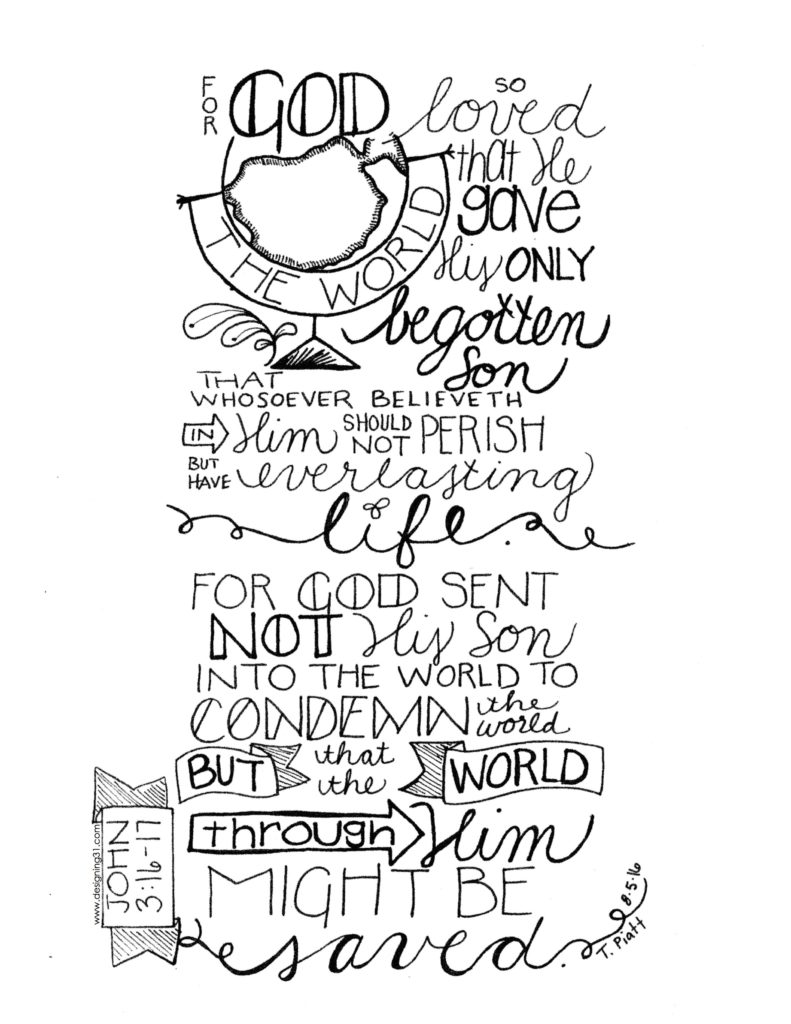 FOR GOD so loved
THE WORLD
that He
gave
His ONLY
begotten
Son
THAT
WHOSOEVER BELIEVETH
IN Him SHOULD NOT PERISH
BUT HAVE everlasting
life.
FOR GOD SENT
NOT His Son
INTO THE WORLD TO
CONDEMN the world
BUT that the WORLD
through Him
MIGHT BE
saved.
JOHN
3:16-17
www.designing31.com
T. Piatt 8.5.16